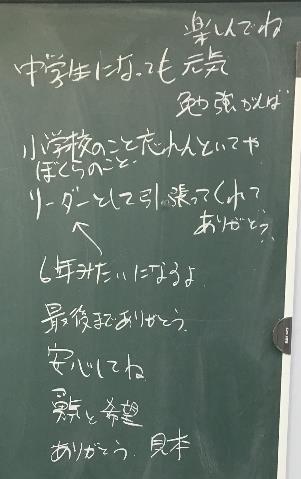 楽しんでね
中学生になっても元気
勉強がんば
小学校のこと忘れんといてや
ぼくらのこと
リーダーとして引っ張ってくれて
ありがとう
6年みたいになるよ
最後までありがとう
安心してね
勇気と希望
ありがとう 見本